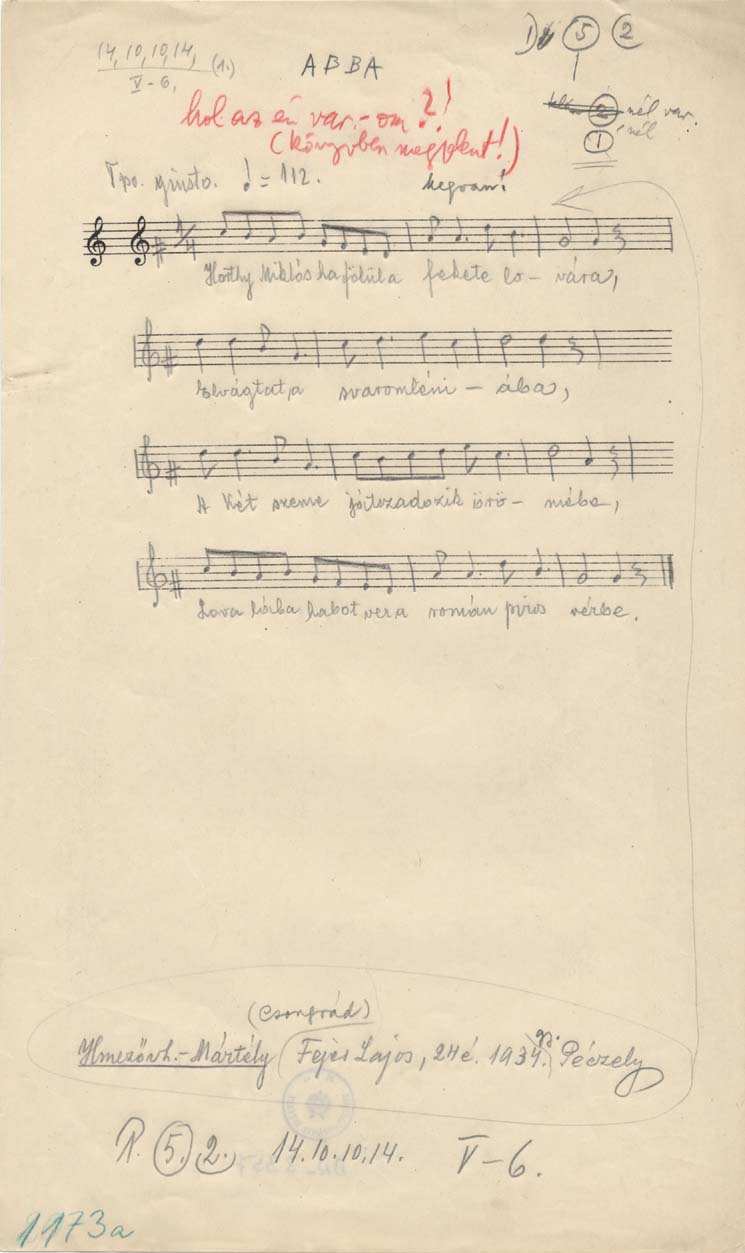 14, 10, 10, 14, (1.)
V-6,
ABBA
5 2
hol az én var.-om ?!
(könyvben megjelent!)
2 nél var.
1 nél
Tpo. giusto. = 112.
Horthy Miklós ha fölül a fekete lo - vára,
Elvágtat a
A két szeme örö - mébe,
Lova habot ver a román piros vérbe.
(Csongrád)
Hmezővh.-Mártély Fejes Lajos, 24 é. 1934. gy. Péczely
5. 2. 14.10.10.14. V-6.
1173a